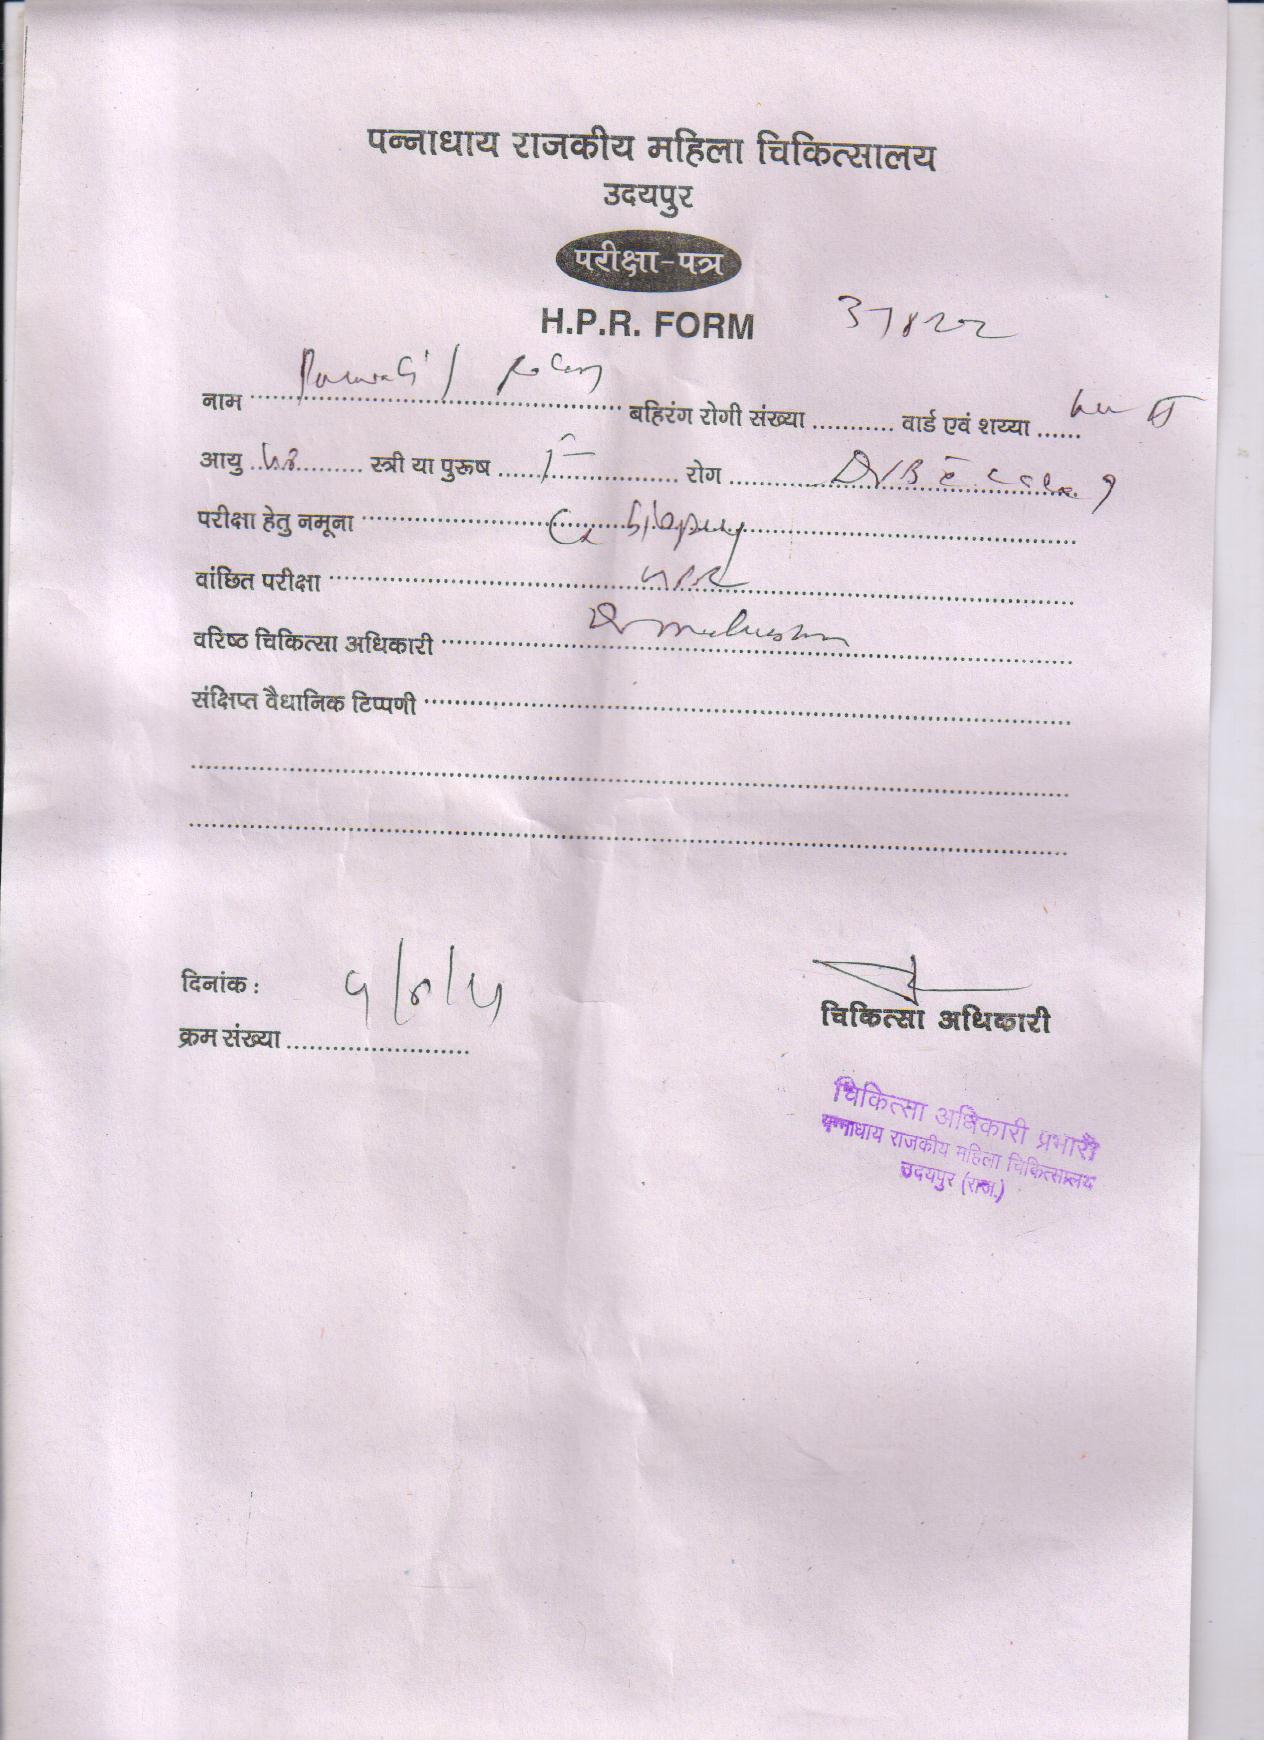 पन्नाधाय राजकीय महिला चिकित्सालय
उदयपुर
परीक्षा-पत्र
H.P.R. FORM 37822
नाम बहिरंग रोगी संख्या वार्ड एवं शय्या
आयु स्त्री या पुरूष F रोग
परीक्षा हेतु नमूना Cx biopsy
वांछित परीक्षा HPR
वरिष्ठ चिकित्सा अधिकारी Dr
संक्षिप्त वैधानिक टिप्पणी
दिनांक :
चिकित्सा अधिकारी
क्रम संख्या
चिकित्सा अधिकारी प्रभारी
पन्नाधाय राजकीय महिला चिकित्सालय
उदयपुर (राज.)